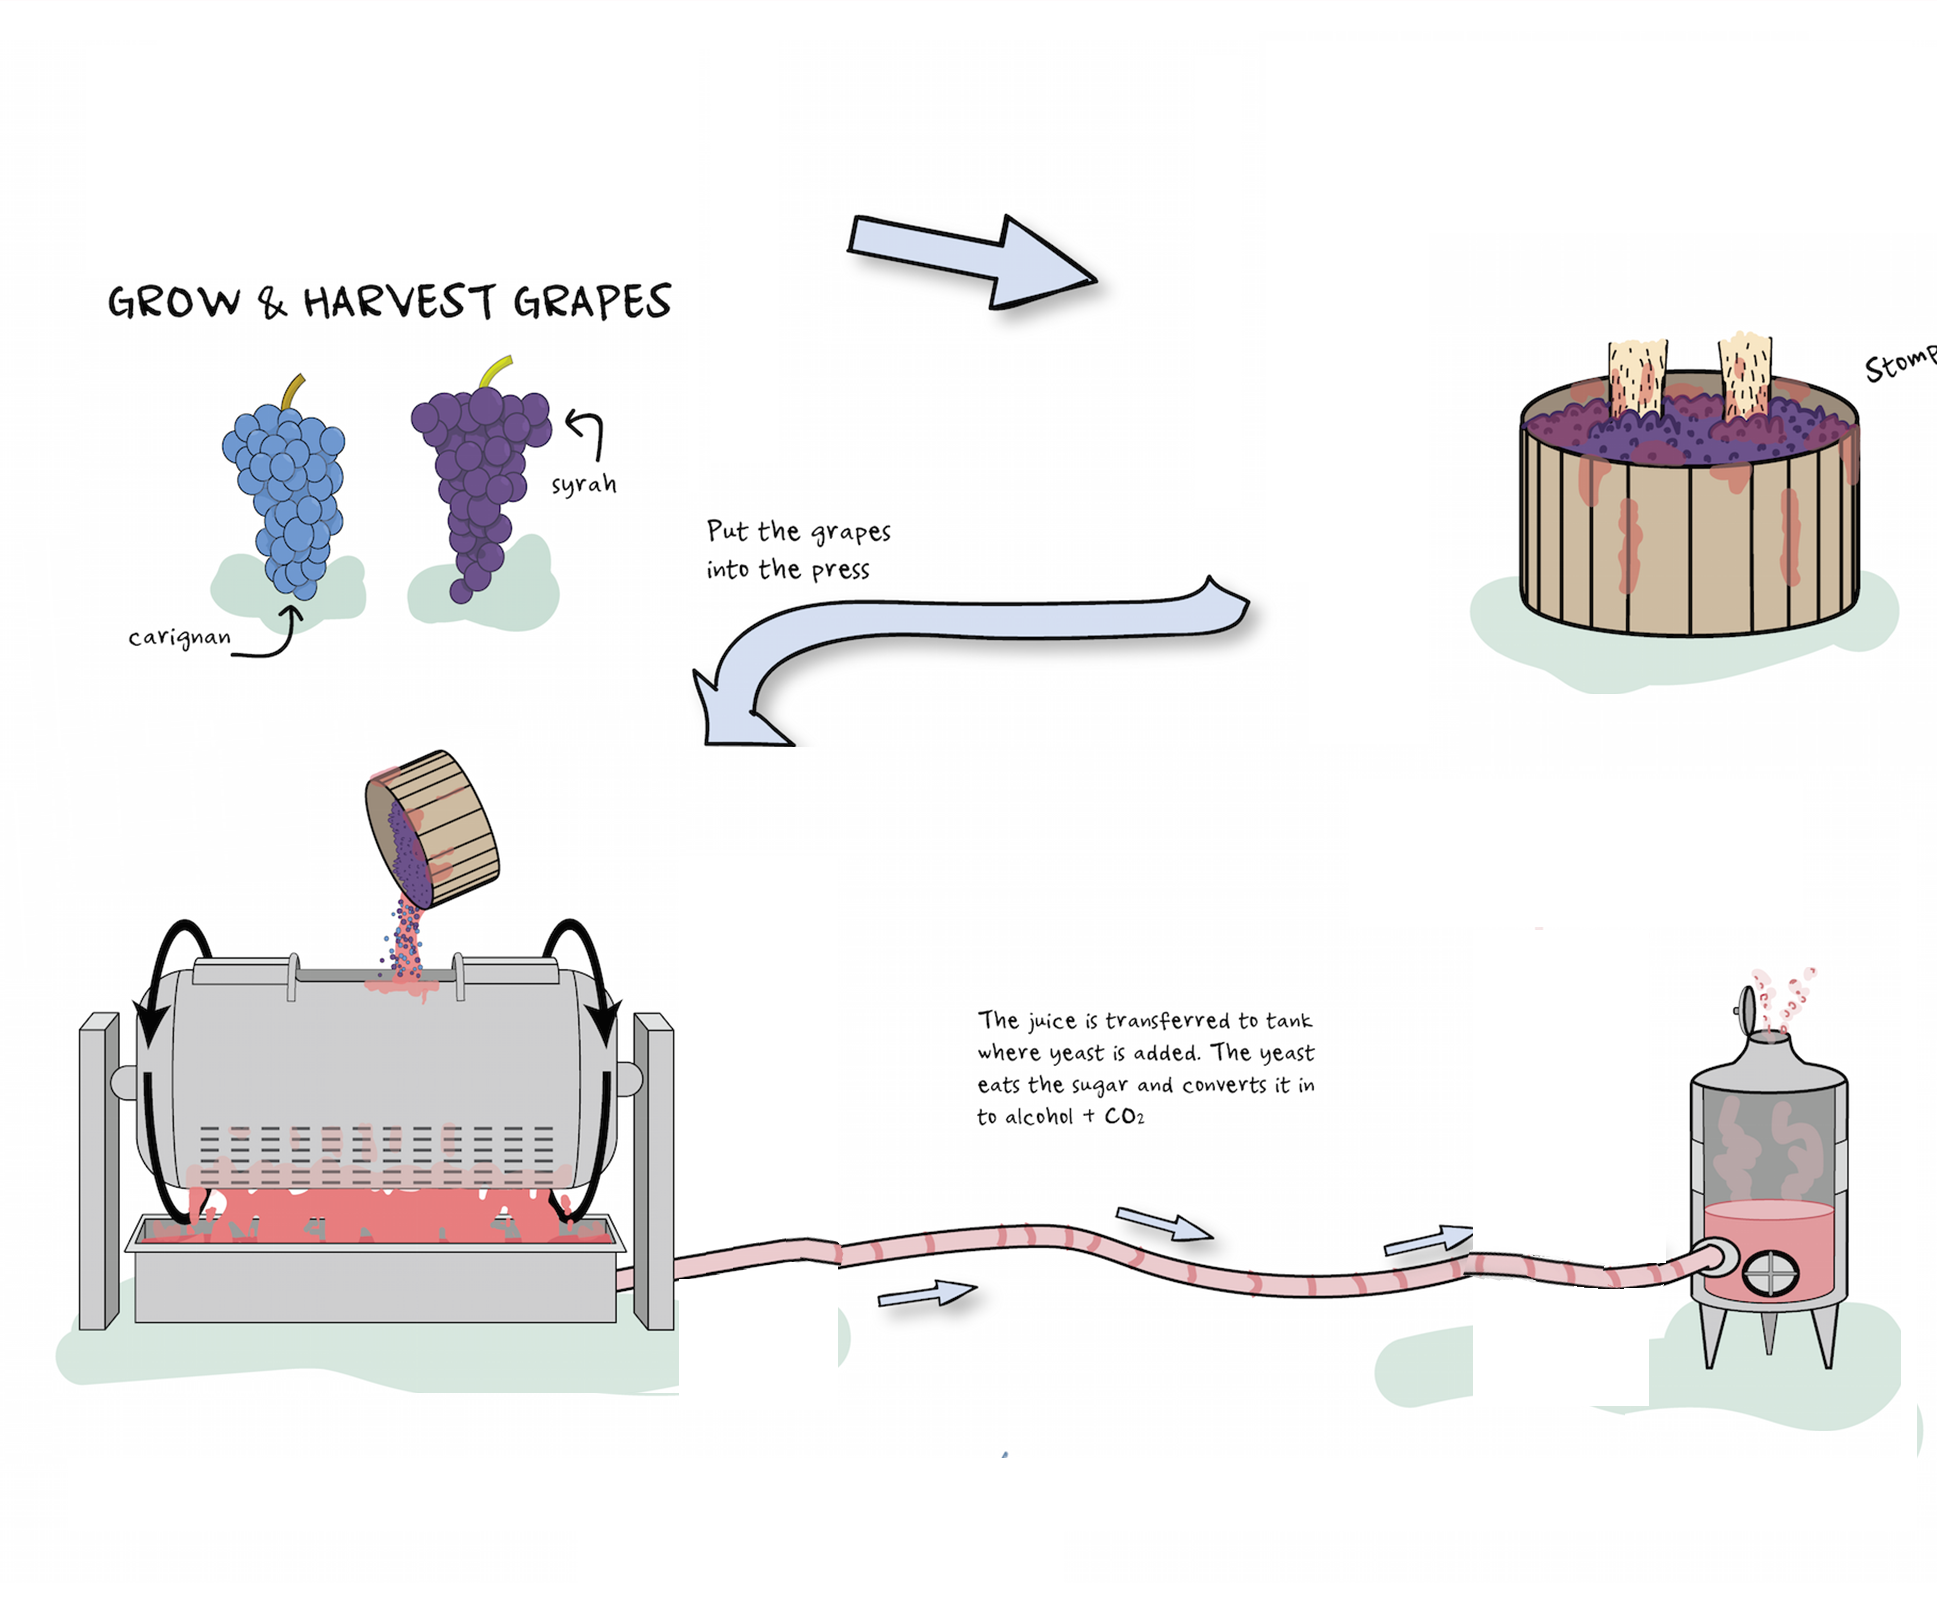 GROW & HARVEST GRAPES
syrah
carignan
Put the grapes
into the press
The juice is transferred to tank
where yeast is added. The yeast
eats the sugar and converts it in
to alcohol + CO₂